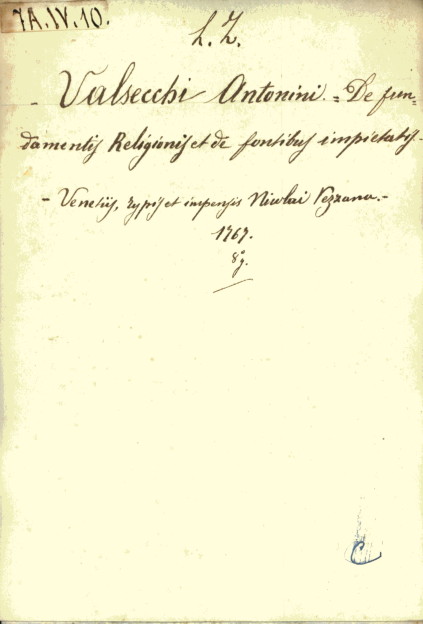 7A.IV.10.
L. Z.
- Valsecchi Antonini. = De fun=
damentis Religionis et de fontibus impietatis. -
- Venetiis, typis et impensis Nicolai Pezzana. -
1767.
8º g.
C